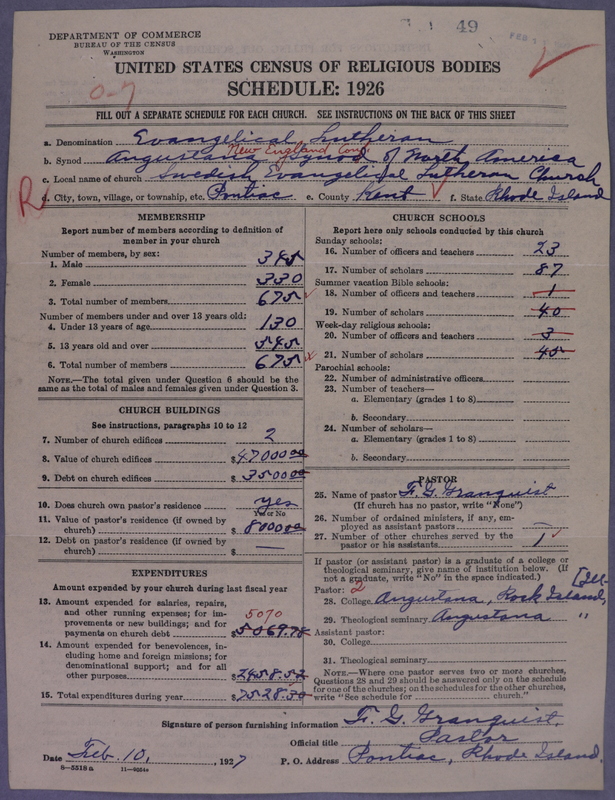 49
FEB
DEPARTMENT OF COMMERCE
BUREAU OF THE CENSUS
WASHINGTON
UNITED STATES CENSUS OF RELIGIOUS BODIES
SCHEDULE: 1926
0-7
FILL OUT A SEPARATE SCHEDULE FOR EACH CHURCH. SEE INSTRUCTIONS ON THE BACK OF THIS SHEET
a. Denomination Evangelical Lutheran
New England Con
b. Synod Augustana Synod of North America
c. Local name of church Swedish Evangelical Lutheran Church
R
d. City, town, village, or township, etc. Pontiac e. County Kent f. State Rhode Island
MEMBERSHIP
Report number of members according to definition of
member in your church
Number of members, by sex:
1. Male 345
2. Female 330
3. Total number of members 675
Number of members under and over 13 years old:
4. Under 13 years of age 130
5. 13 years old and over 545
6. Total number of members 675
NOTE.—The total given under Question 6 should be the
same as the total of males and females given under Question 3.
CHURCH BUILDINGS
See instructions, paragraphs 10 to 12
7. Number of church edifices 2
8. Value of church edifices $47000.00
9. Debt on church edifices $3500.00
10. Does church own pastor's residence? yes
Yes or No
11. Value of pastor's residence (if owned by
church) $8000.00
12. Debt on pastor's residence (if owned by
church) $ —
EXPENDITURES
Amount expended by your church during last fiscal year
13. Amount expended for salaries, repairs,
and other running expenses; for im-
provements or new buildings; and for
5070
payments on church debt $5069.78
14. Amount expended for benevolences, in-
cluding home and foreign missions; for
denominational support; and for all
other purposes $2458.52
15. Total expenditures during year $7528.30
CHURCH SCHOOLS
Report here only schools conducted by this church
Sunday schools:
16. Number of officers and teachers 23
17. Number of scholars 87
Summer vacation Bible schools:
18. Number of officers and teachers 1
19. Number of scholars 40
Week-day religious schools:
20. Number of officers and teachers 3
21. Number of scholars 45
Parochial schools:
22. Number of administrative officers
23. Number of teachers—
a. Elementary (grades 1 to 8)
b. Secondary
24. Number of scholars—
a. Elementary (grades 1 to 8)
b. Secondary
PASTOR
25. Name of pastor F. G. Granquist
(If church has no pastor, write "None")
26. Number of ordained ministers, if any, em-
ployed as assistant pastors —
27. Number of other churches served by the
pastor or his assistants 1
If pastor (or assistant pastor) is a graduate of a college or
theological seminary, give name of institution below. (If
not a graduate, write "No" in the space indicated.)
Pastor: 2 [Ill.
28. College Augustana, Rock Island,
29. Theological seminary Augustana "
Assistant pastor:
30. College
31. Theological seminary
NOTE.—Where one pastor serves two or more churches,
Questions 28 and 29 should be answered only on the schedule
for one of the churches; on the schedules for the other churches,
write "See schedule for church."
Signature of person furnishing information F. G. Granquist.
Official title Pastor
Date Feb. 10, 1927 P. O. Address Pontiac, Rhode Island.
8—5518a 11—8054